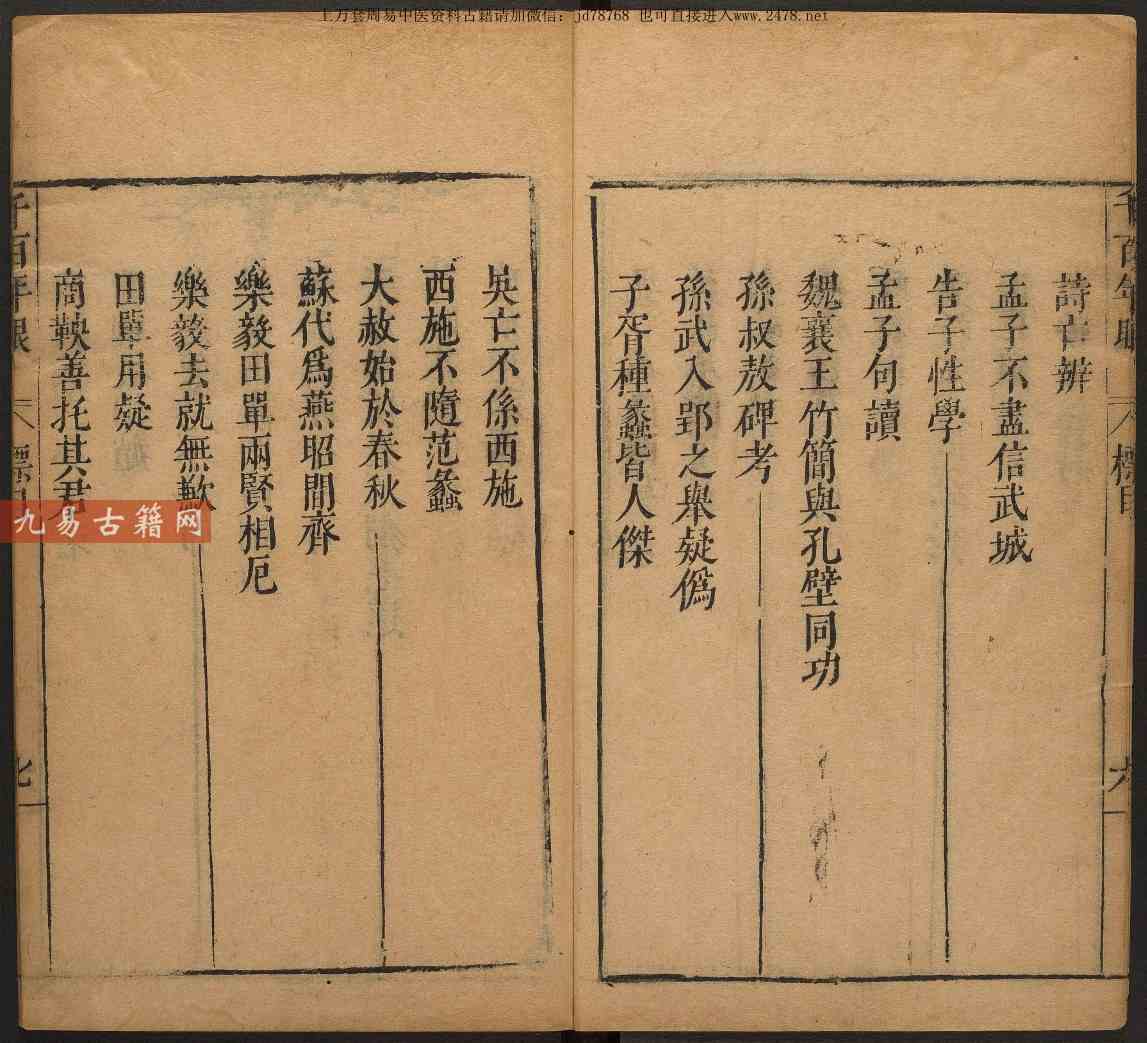 上万套周易中医资料古籍请加微信：jd78768 也可直接进入www.2478.net
千百年眼 標目 六
詩亡辨
孟子不盡信武城
告子性學
孟子句讀
魏襄王竹簡與孔壁同功
孫叔敖碑考
孫武入郢之舉疑僞
子胥種蠡皆人傑
吳亡不係西施
西施不隨范蠡
大赦始於春秋
蘇代爲燕昭間齊
樂毅田單兩賢相厄
樂毅去就無歉
田單用疑
商鞅善托其君
千百年眼 標目 七
九易古籍网